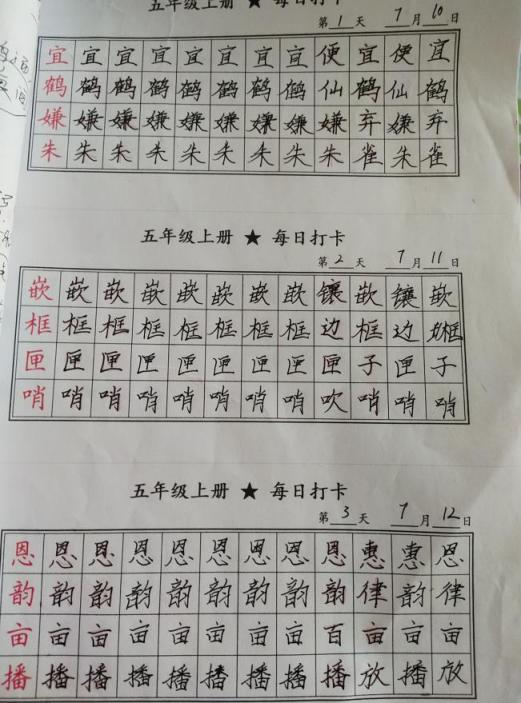 五年级上册 ★ 每日打卡
第1天 7月10日
宜宜宜宜宜宜宜宜便宜便宜
鹤鹤鹤鹤鹤鹤鹤鹤仙鹤仙鹤
嫌嫌嫌嫌嫌嫌嫌嫌嫌弃嫌弃
朱朱朱朱朱朱朱朱朱雀朱雀
五年级上册 ★ 每日打卡
第2天 7月11日
嵌嵌嵌嵌嵌嵌嵌嵌镶嵌镶嵌
框框框框框框框框边框边框
匣匣匣匣匣匣匣匣匣子匣子
哨哨哨哨哨哨哨哨吹哨哨哨
五年级上册 ★ 每日打卡
第3天 7月12日
恩恩恩恩恩恩恩恩恩惠惠恩
韵韵韵韵韵韵韵韵韵律韵律
亩亩亩亩亩亩亩亩百亩亩亩
播播播播播播播播播放播放